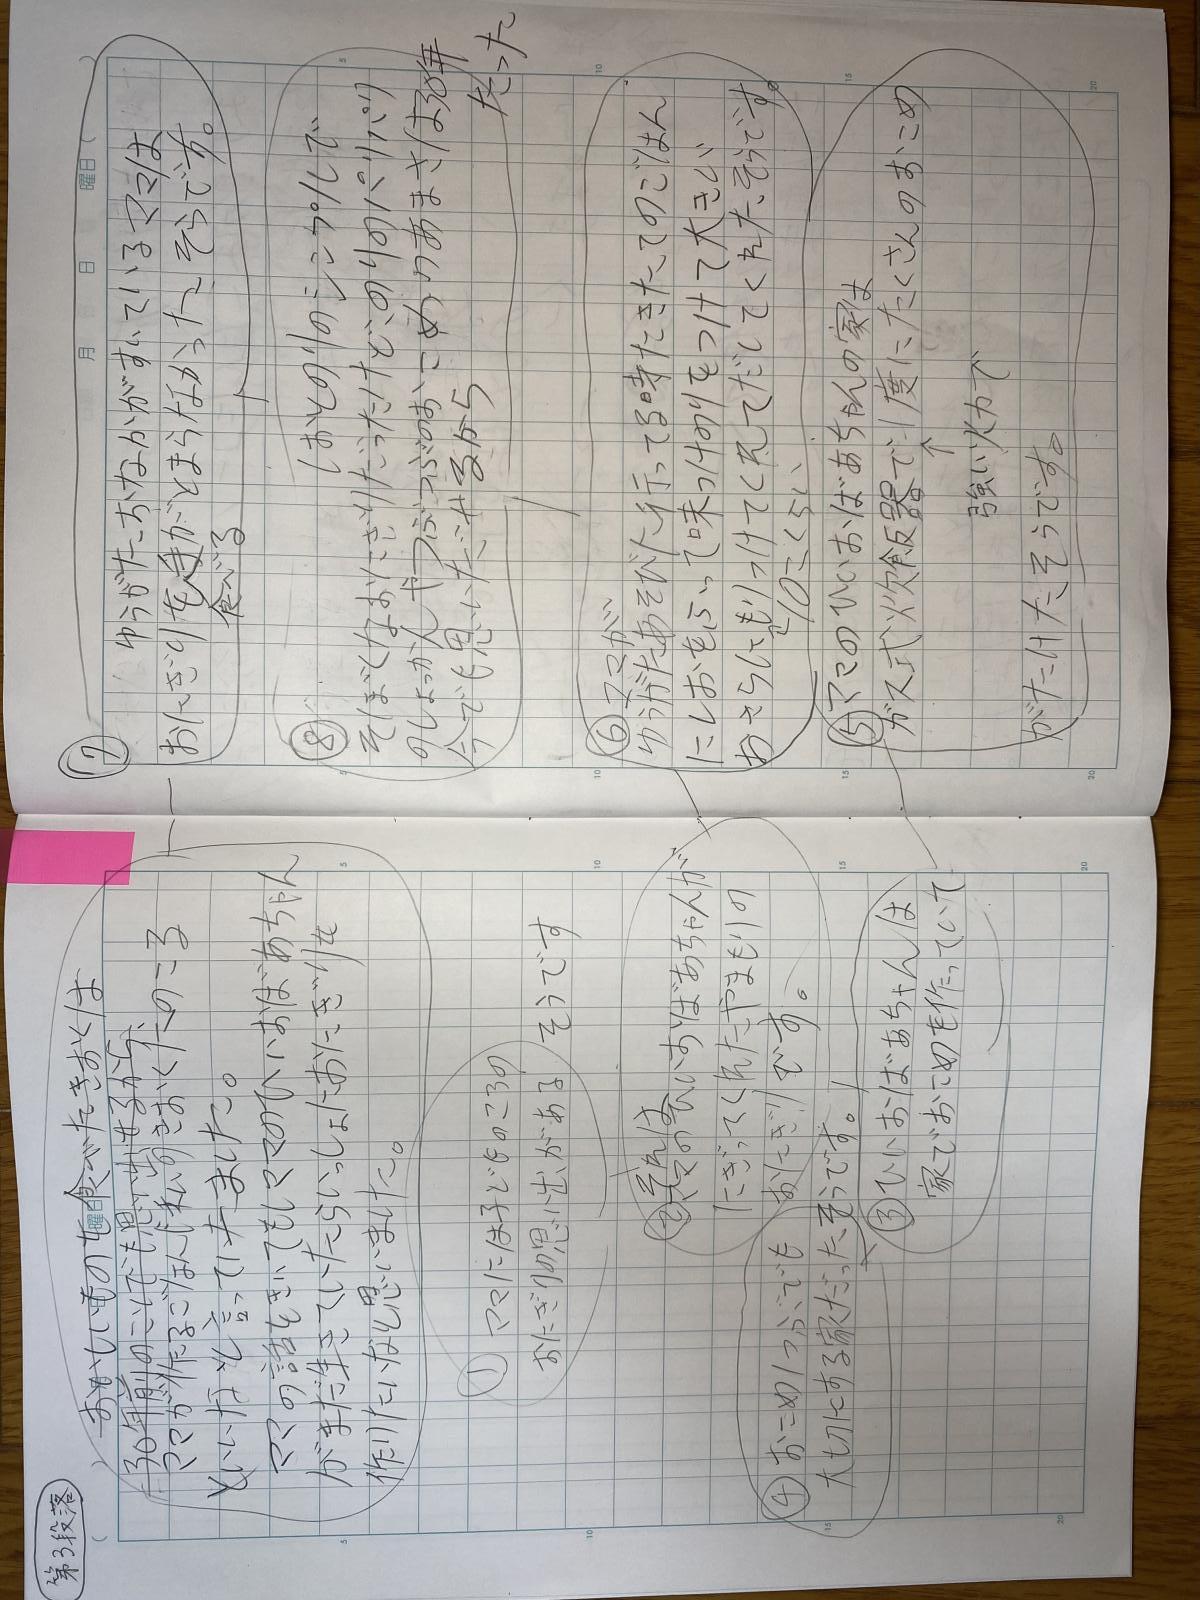 第3段落
おいしいものを食べたきおくは
30年前のことでも思い出せるから
ママが作るごはんじまいのきおくたのこる
といいなと言っていました。
ママの話をきいてもしママのひいおばあちゃん
がまだ生きていたらいっしょにおにぎりを
作りたいなと思いました。
① ママには子どものころの
おにぎりの思い出がある そうです
② それは
ママのひいおばあちゃんが
にぎってくれたやまもりの
おにぎりです。
④ おこめ1つぶでも
大切にする家だったそうです。
③ ひいおばあちゃんは
家でおこめを作っていて
⑦ ゆうがたおなかがすいているママは
おにぎりを手がとまらなかったそうです。
食べる
⑧ しおとのりのシンプルで
そぼくなおにぎりだったけど、のりのパリパリ
のしょっかんやつぶつぶのおこめのあまさは30年
だった
今でも思いだせるから
⑥ ママが
ゆうがたあそびに行ってる時たきたてのごはん
にしおをふって味つけのりをつけて大きい
おさらにもりつけてくれてだしてくれたそうです。
10こくらい
⑤ ママのひいおばあちゃんの家は
ガス式炊飯器で1度にたくさんのおこめ
強い火力で
がたけたそうです。